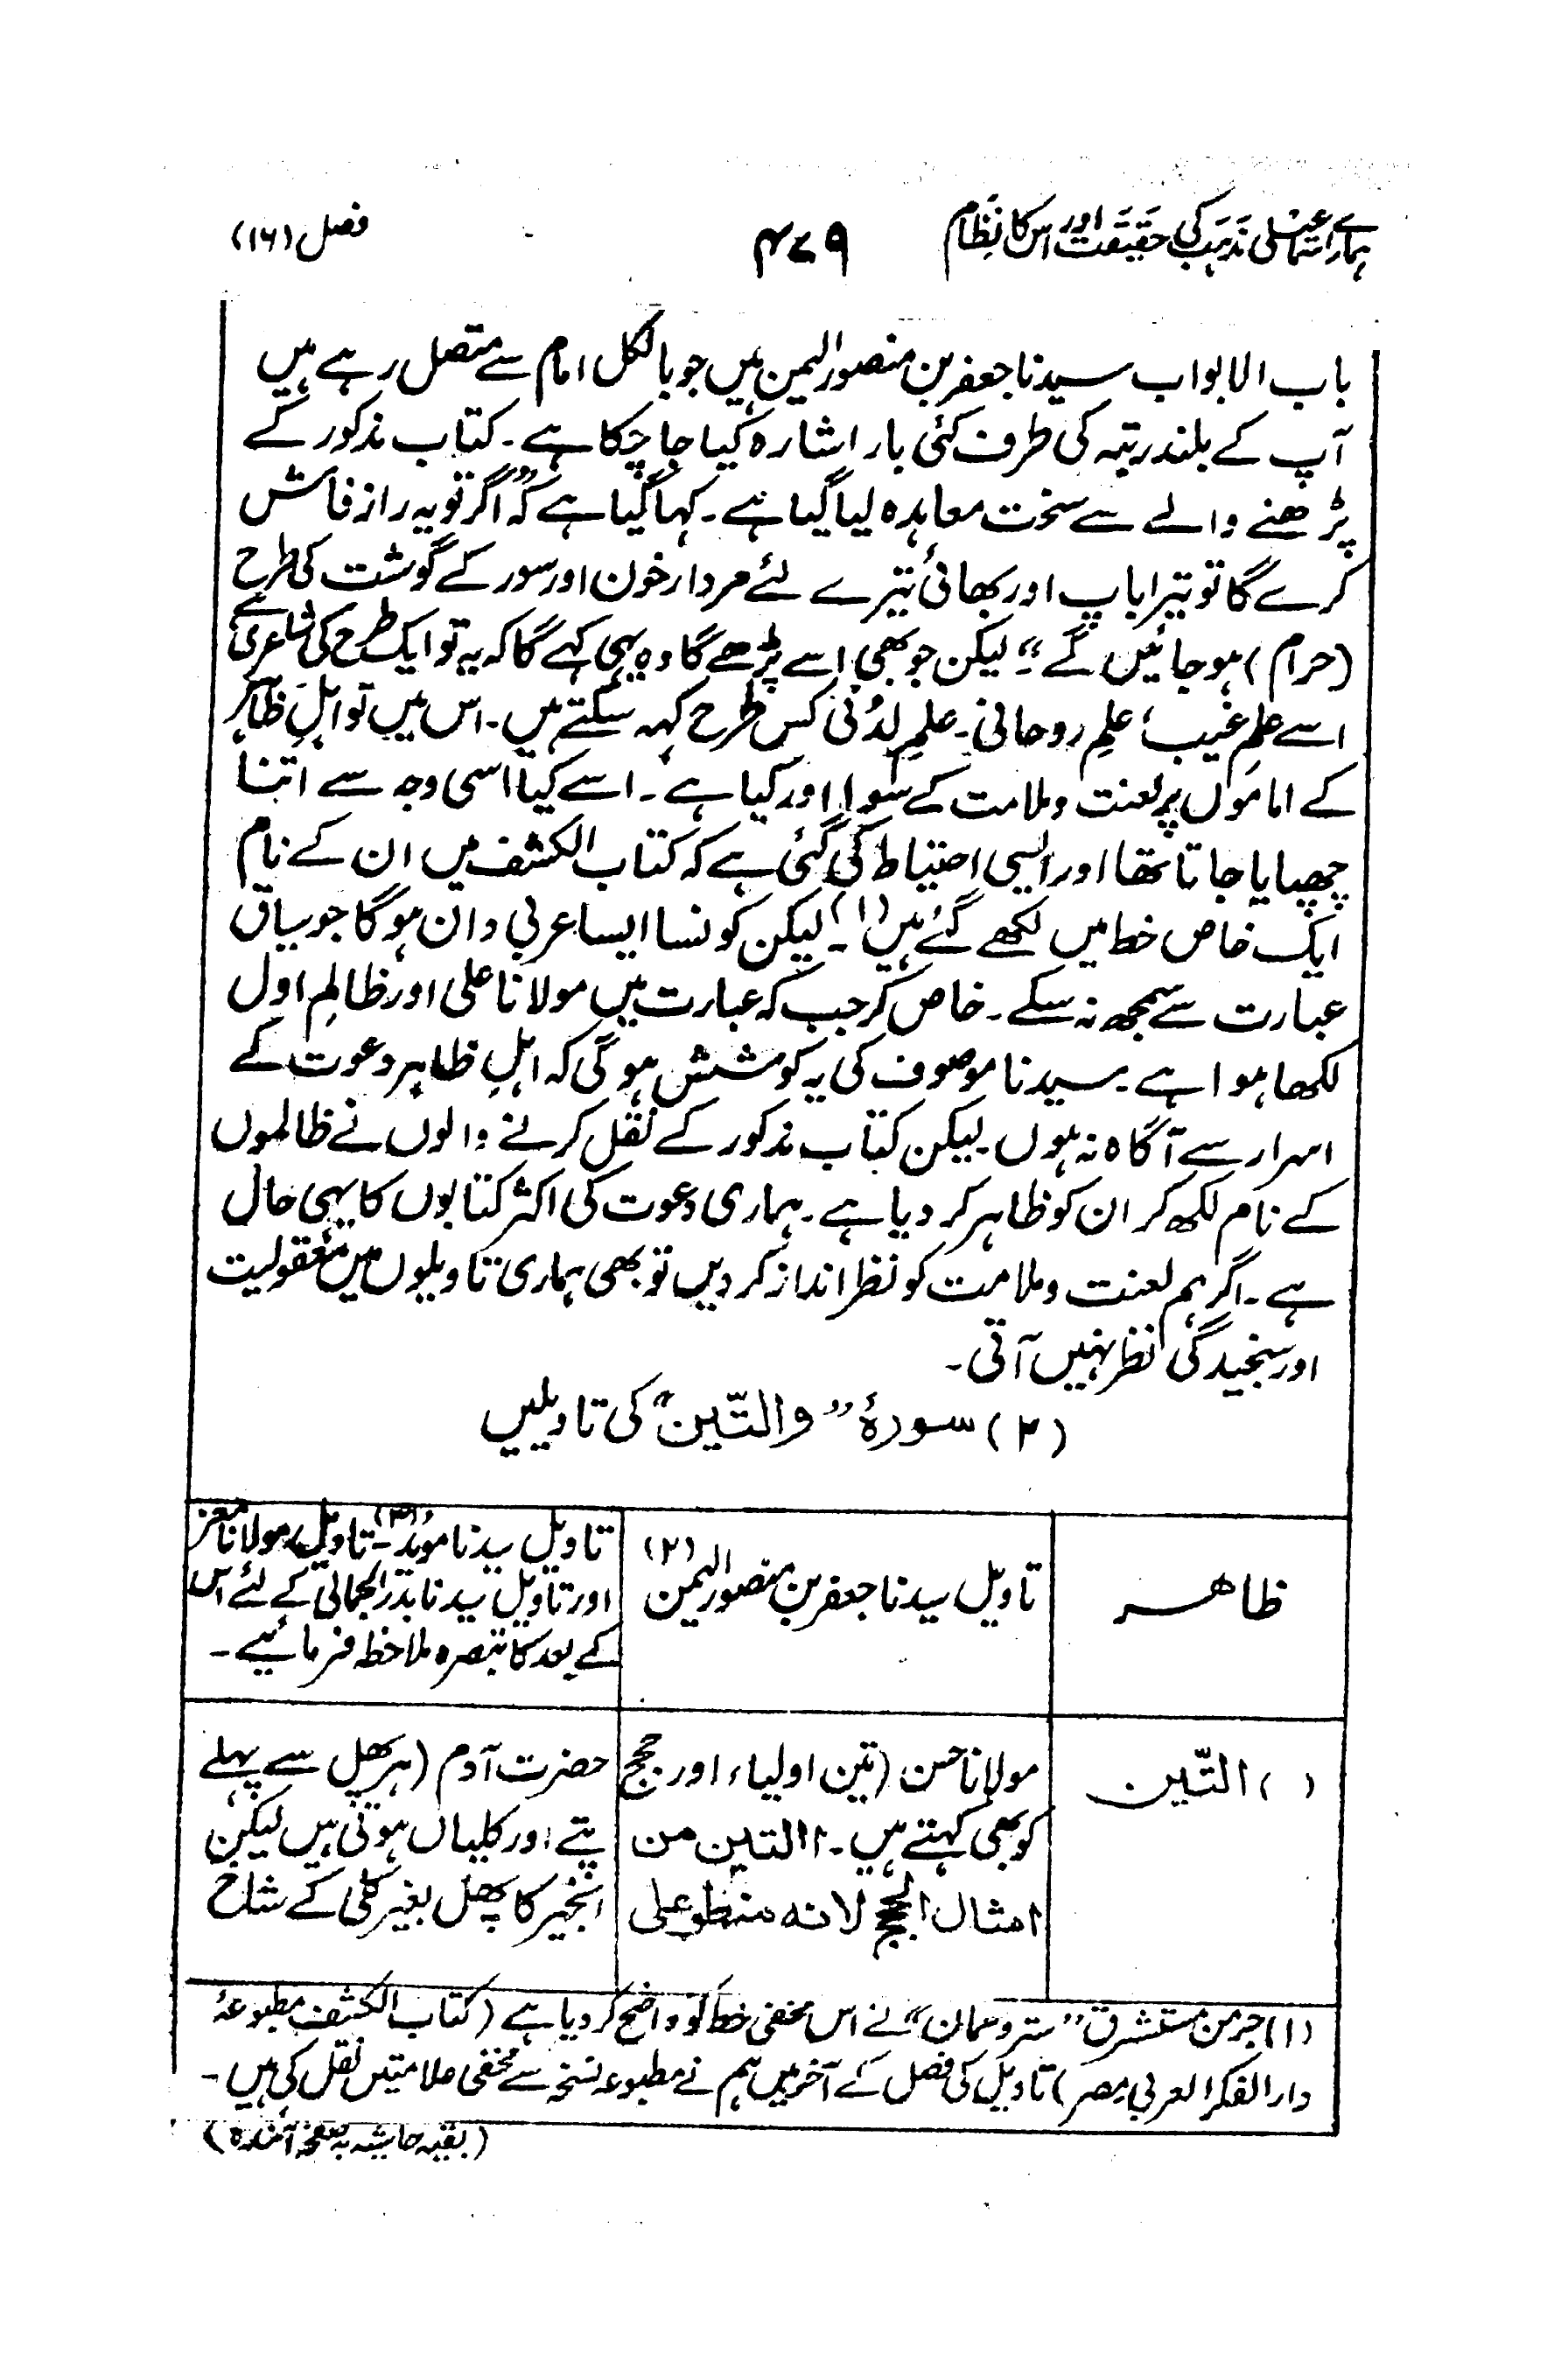 ہمارے اسماعیلی مذہب کی حقیقت اور اس کا نظام
۴۷۹
فصل (۱۶)
باب الابواب سیدنا جعفر بن منصور الیمن ہیں جو بالکل امام سے متصل رہے ہیں
آپ کے بلند رتبہ کی طرف کئی بار اشارہ کیا جا چکا ہے۔ کتاب مذکور کے
پڑھنے والے سے سخت معاہدہ لیا گیا ہے۔ کہا گیا ہے کہ "اگر تو یہ راز فاش
کرے گا تو تیرا باپ اور بھائی تیرے لئے مردار خون اور سور کے گوشت کی طرح
(حرام) ہو جائیں گے"۔ لیکن جو بھی اسے پڑھے گا وہ یہی کہے گا کہ یہ تو ایک طرح کی شاعری ہے
اسے علمِ غیب، علمِ روحانی۔ علمِ لدُنی کس طرح کہہ سکتے ہیں۔ اس میں تو اہلِ ظاہر
کے اماموں پر لعنت و ملامت کے سوا اور کیا ہے۔ اسے کیا اسی وجہ سے اتنا
چھپایا جاتا تھا اور ایسی احتیاط کی گئی ہے کہ کتاب الکشف میں ان کے نام
ایک خاص خط میں لکھے گئے ہیں (۱)۔ لیکن کونسا ایسا عربی دان ہو گا جو سیاق
عبارت سے سمجھ نہ سکے۔ خاص کر جب کہ عبارت میں مولانا علی اور ظالمِ اول
لکھا ہوا ہے۔ سیدنا موصوف کی یہ کوشش ہو گی کہ اہلِ ظاہر دعوت کے
اسرار سے آگاہ نہ ہوں۔ لیکن کتاب مذکور کے نقل کرنے والوں نے ظالموں
کے نام لکھ کر ان کو ظاہر کر دیا ہے۔ ہماری دعوت کی اکثر کتابوں کا یہی حال
ہے۔ اگر ہم لعنت و ملامت کو نظر انداز کر دیں تو بھی ہماری تاویلوں میں معقولیت
اور سنجیدگی نظر نہیں آتی۔
(۲) سورۂ "والتّین" کی تاویلیں
ظاھر
تاویل سیدنا جعفر بن منصور الیمن (۲)
تاویل سیدنا موید (۳)۔ تاویل مولانا معز
اور تاویل سیدنا بدر الجمالی کے لئے اس
کے بعد کا تبصرہ ملاحظہ فرمائیے۔
( ) التّین
مولانا حسن (تین اولیاء اور حجج
کو بھی کہتے ہیں۔ االتین من
امثال الحجج لانہ منطو علی
حضرت آدم (ہر پھل سے پہلے
پتے اور کلیاں ہوتی ہیں لیکن
انجیر کا پھل بغیر کلی کے شاخ
(۱) جرمن مستشرق "ستروسمان" نے اس مخفی خط کو واضح کر دیا ہے (کتاب الکشف مطبوعۂ
دار الفکر العربی مصر) تاویل کی فصل کے آخر میں ہم نے مطبوعہ نسخہ سے مخفی علامتیں نقل کی ہیں۔
(بقیہ حاشیہ بہ صفحہ آئندہ)